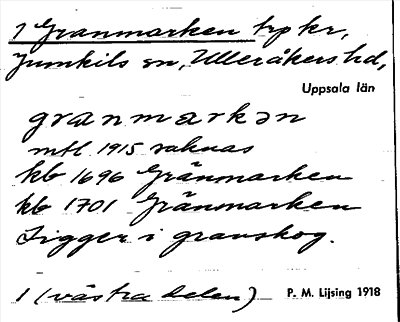 1 Granmarken trp kr,
Jumkils sn, Ulleråkers hd,
Uppsala län
granmarkən
mtl 1915 saknas
kb 1696 Gränmarken
kb 1701 Gränmarken
Ligger i granskog.
1 (västra delen) P. M. Lijsing 1918